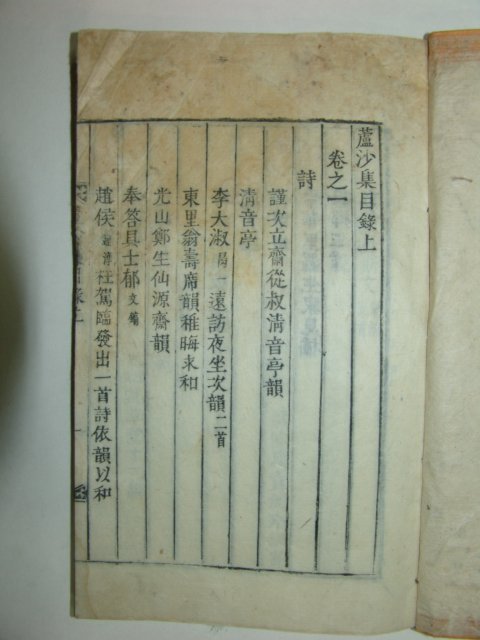 蘆沙集目錄上
卷之一
詩
謹次立齋從叔淸音亭韻
淸音亭
李大淑 一遠訪夜坐次韻二首
東里翁壽席韻稚晦求和
光山鄭生仙源齋韻
奉答具士郁文
趙侯 枉駕臨發出一首詩依韻以和